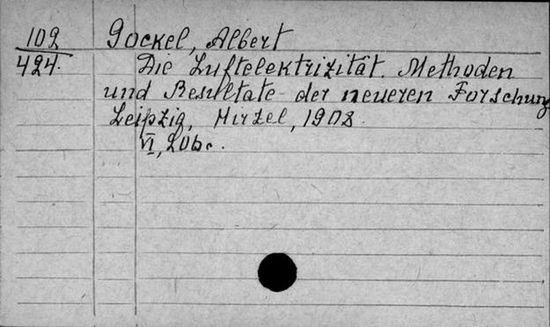 102 Gockel, Albert
424. Die Luftelektrizität. Methoden
und Resultate der neueren Forschung
Leipzig, Hirzel, 1908.
VI, 206 с.